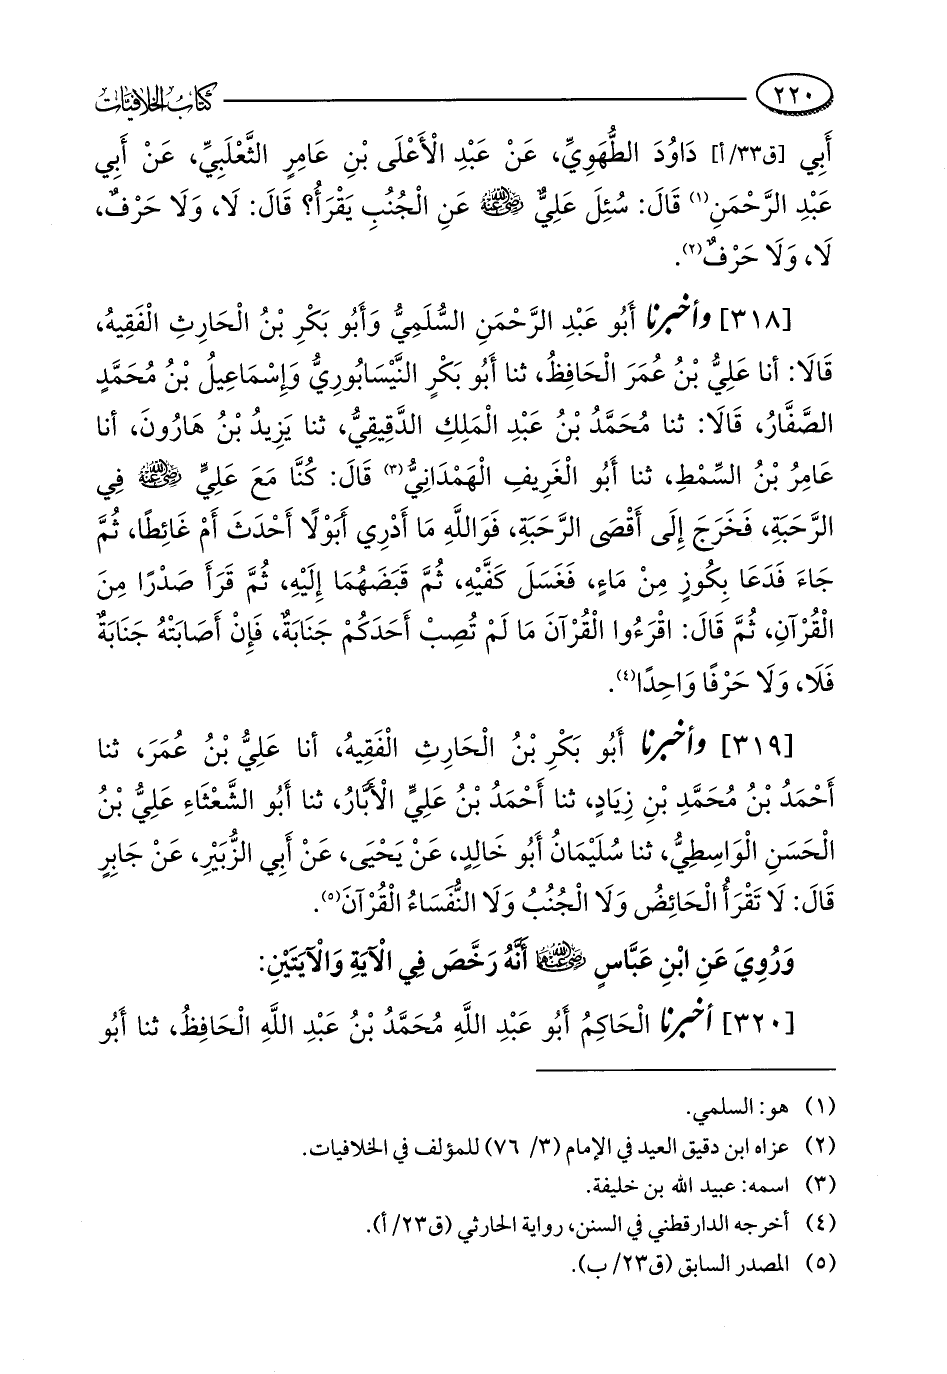 ٢٢٠ كتاب الخلافيات
أَبِي [ق٣٣/أ] دَاوُدَ الطُّهَوِيِّ، عَنْ عَبْدِ الْأَعْلَى بْنِ عَامِرٍ الثَّعْلَبِيِّ، عَنْ أَبِي
عَبْدِ الرَّحْمَنِ(١) قَالَ: سُئِلَ عَلِيٌّ رضي الله عنه عَنِ الْجُنُبِ يَقْرَأُ؟ قَالَ: لَا، وَلَا حَرْفٌ،
لَا، وَلَا حَرْفٌ(٢).
[٣١٨] وأخبرنا أَبُو عَبْدِ الرَّحْمَنِ السُّلَمِيُّ وَأَبُو بَكْرِ بْنُ الْحَارِثِ الْفَقِيهُ،
قَالَا: أنا عَلِيُّ بْنُ عُمَرَ الْحَافِظُ، ثنا أَبُو بَكْرٍ النَّيْسَابُورِيُّ وَإِسْمَاعِيلُ بْنُ مُحَمَّدٍ
الصَّفَّارُ، قَالَا: ثنا مُحَمَّدُ بْنُ عَبْدِ الْمَلِكِ الدَّقِيقِيُّ، ثنا يَزِيدُ بْنُ هَارُونَ، أنا
عَامِرُ بْنُ السِّمْطِ، ثنا أَبُو الْغَرِيفِ الْهَمْدَانِيُّ(٣) قَالَ: كُنَّا مَعَ عَلِيٍّ رضي الله عنه فِي
الرَّحَبَةِ، فَخَرَجَ إِلَى أَقْصَى الرَّحَبَةِ، فَوَاللَّهِ مَا أَدْرِي أَبَوْلًا أَحْدَثَ أَمْ غَائِطًا، ثُمَّ
جَاءَ فَدَعَا بِكُوزٍ مِنْ مَاءٍ، فَغَسَلَ كَفَّيْهِ، ثُمَّ قَبَضَهُمَا إِلَيْهِ، ثُمَّ قَرَأَ صَدْرًا مِنَ
الْقُرْآنِ، ثُمَّ قَالَ: اقْرَءُوا الْقُرْآنَ مَا لَمْ تُصِبْ أَحَدَكُمْ جَنَابَةٌ، فَإِنْ أَصَابَتْهُ جَنَابَةٌ
فَلَا، وَلَا حَرْفًا وَاحِدًا(٤).
[٣١٩] وأخبرنا أَبُو بَكْرِ بْنُ الْحَارِثِ الْفَقِيهُ، أنا عَلِيُّ بْنُ عُمَرَ، ثنا
أَحْمَدُ بْنُ مُحَمَّدِ بْنِ زِيَادٍ، ثنا أَحْمَدُ بْنُ عَلِيٍّ الْأَبَّارُ، ثنا أَبُو الشَّعْثَاءِ عَلِيُّ بْنُ
الْحَسَنِ الْوَاسِطِيُّ، ثنا سُلَيْمَانُ أَبُو خَالِدٍ، عَنْ يَحْيَى، عَنْ أَبِي الزُّبَيْرِ، عَنْ جَابِرٍ
قَالَ: لَا تَقْرَأُ الْحَائِضُ وَلَا الْجُنُبُ وَلَا النُّفَسَاءُ الْقُرْآنَ(٥).
وَرُوِيَ عَنِ ابْنِ عَبَّاسٍ رضي الله عنهما أَنَّهُ رَخَّصَ فِي الْآيَةِ وَالْآيَتَيْنِ:
[٣٢٠] أخبرنا الْحَاكِمُ أَبُو عَبْدِ اللَّهِ مُحَمَّدُ بْنُ عَبْدِ اللَّهِ الْحَافِظُ، ثنا أَبُو
(١) هو: السلمي.
(٢) عزاه ابن دقيق العيد في الإمام (٣/ ٧٦) للمؤلف في الخلافيات.
(٣) اسمه: عبيد الله بن خليفة.
(٤) أخرجه الدارقطني في السنن، رواية الحارثي (ق٢٣/ أ).
(٥) المصدر السابق (ق٢٣/ ب).